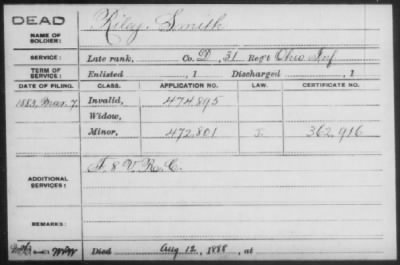 DEAD
NAME OF SOLDIER: Riley Smith
SERVICE: Late rank, Co. D, 31 Reg't Ohio Inf
TERM OF SERVICE: Enlisted , 1 Discharged , 1
DATE OF FILING. CLASS. APPLICATION NO. LAW. CERTIFICATE NO.
1883, Mar. 7. Invalid, 474.895
Widow,
Minor, 472.801 362,916
ADDITIONAL SERVICES: 8 V.R.C.
REMARKS:
Died Aug 12, 1888, at